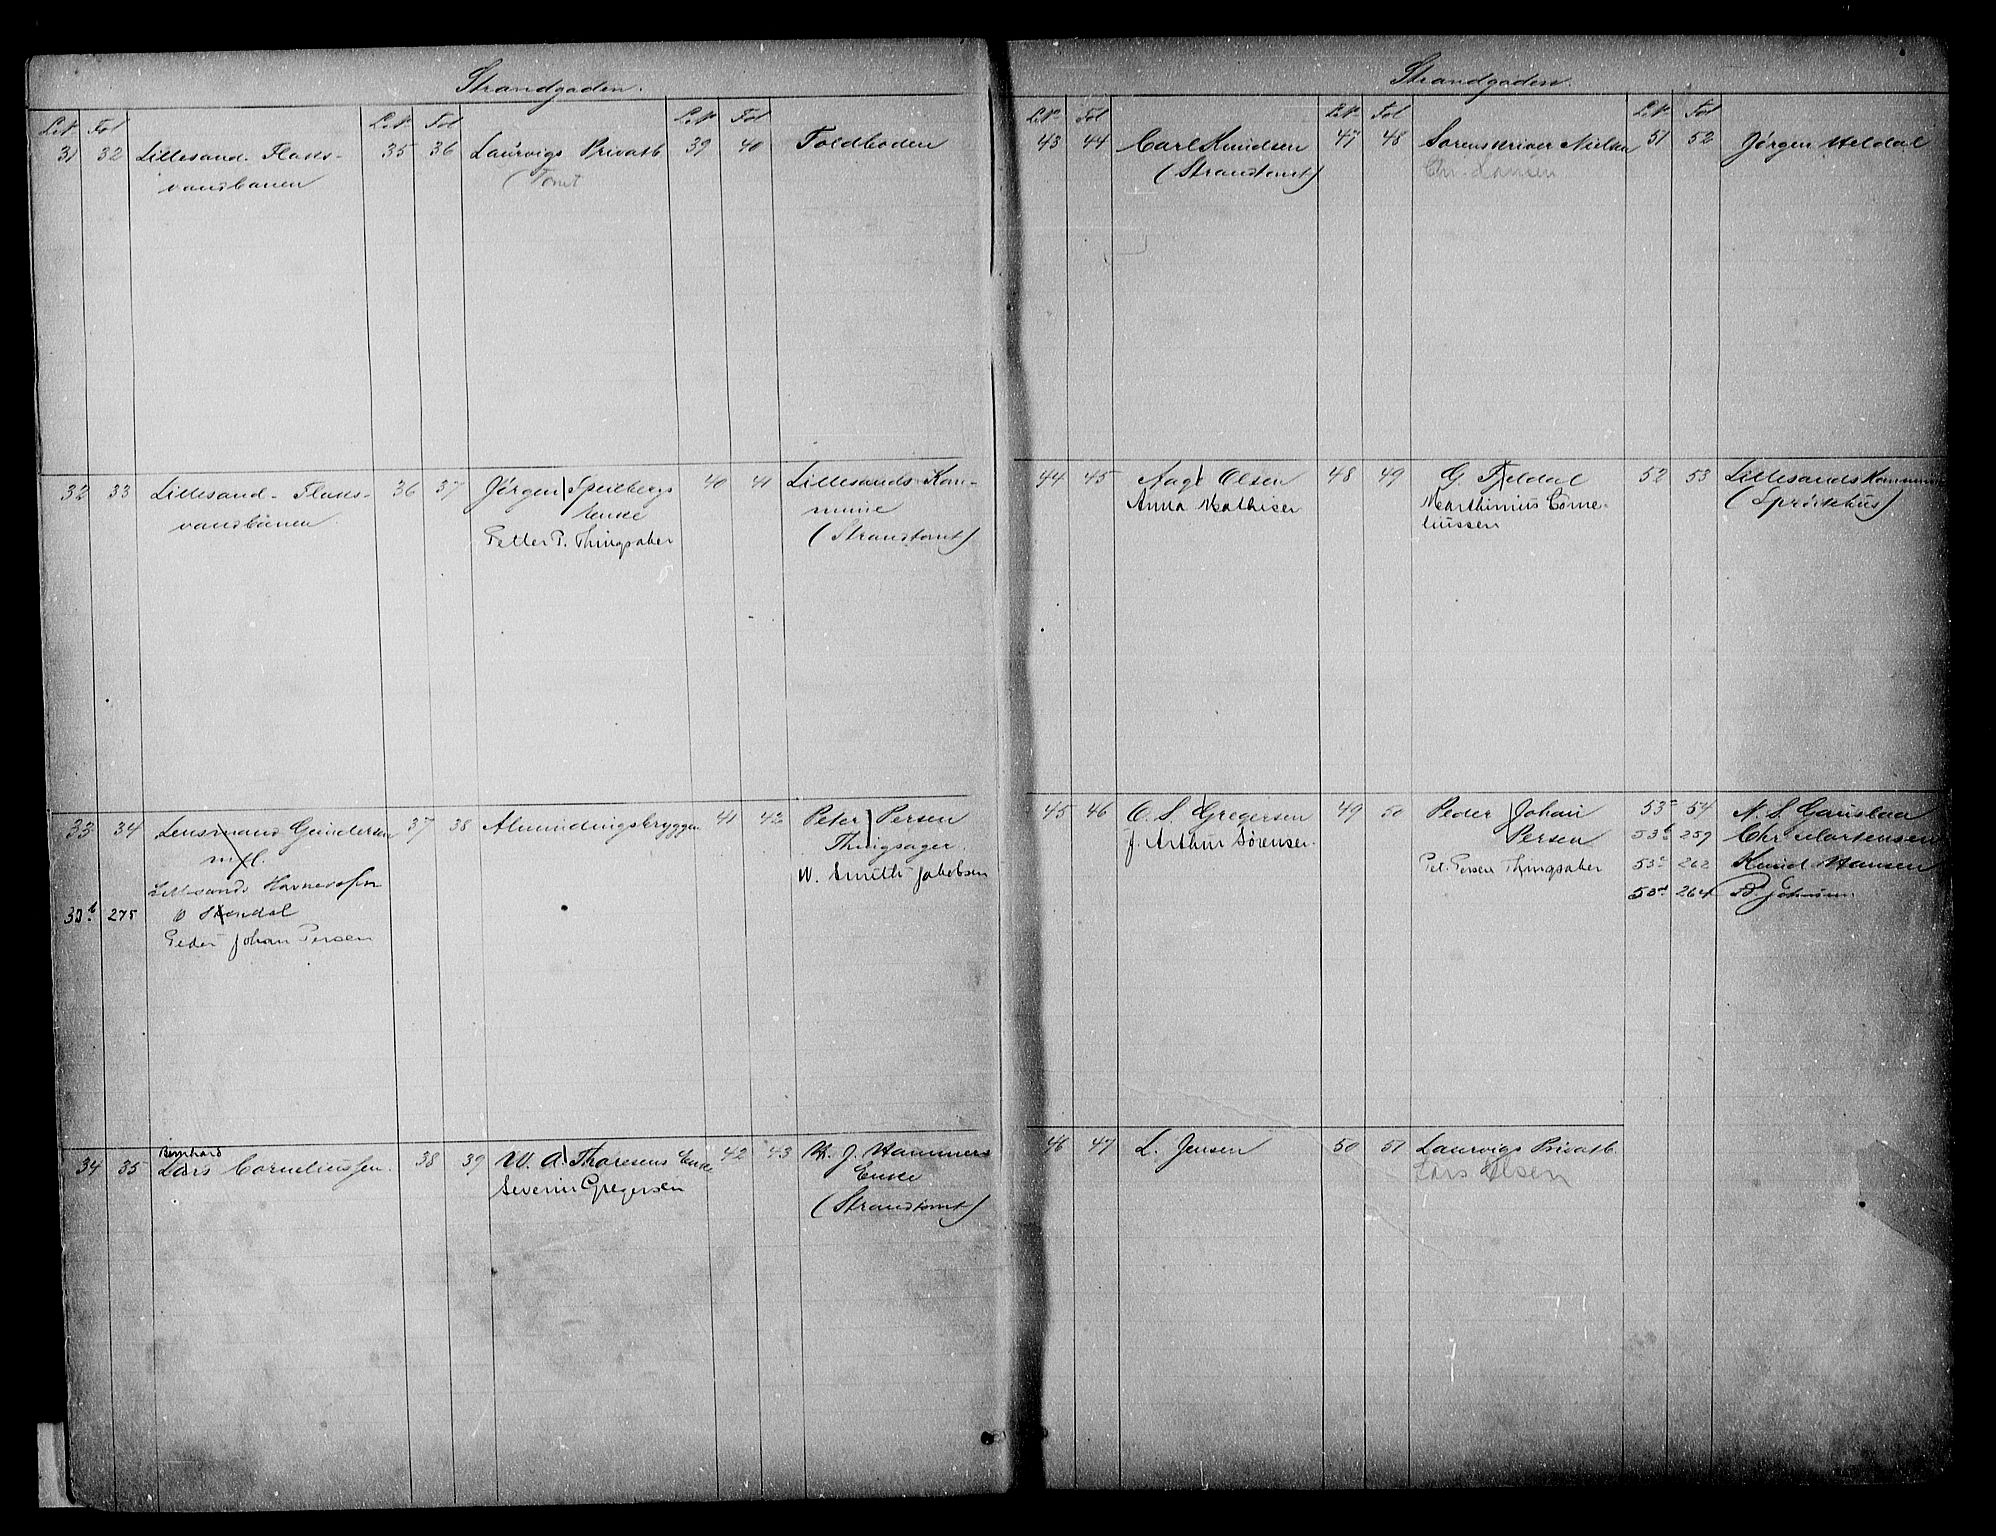 Strandgaden.
Lit. Fol
31 32 Lillesand. Flaks-
vandbanen
32 33 Lillesand - Flaks-
vandbanen.
33 34 Lensmand Gundersen
m fl.
Lillesands Havnevæsen
33b 275
Peder Johan Persen
Bernhard
34 35 Lars Corneliussen.
Lit. Fol
35 36 Laurvigs Privatb
(Tomt
36 37 Jörgen Speilbergs
Enke
Petter P. Thingsaker
37 38 Almindingsbryggen
38 39 W. A. Thoresens Enke
Severin Gregersen
Lit. Fol
39 40 Toldboden
40 41 Lillesands Kom-
mune
(Strandtomt)
41 42 Peter Persen
Thingsager.
W. Smith-Jakobsen
42 43 J. Hammers
Enke
(Strandtomt)
Strandgaden.
Lit. Fol
43 44 Carl Knudsen
(Strandtomt)
44 45 Aage Olsen
Anna Mathisen
45 46 O. S. Gregersen
J. Arthur Sørensen.
46 47 L. Jensen
Lit. Fol
47 48 Sorenskriver Nielsen
Chr. Hansen
48 49 G. Tjeldal
Marthinius Corne-
liussen
49 50 Peder Johan
Persen
Pet. Persen Thingsaker
50 51 Laurvigs Privatb
Lars Olsen
Lit. Fol
51 52 Jørgen Heldal
52 53 Lillesands Kommune
(Sprøitehus)
53a 54 N. S. Gauslaa
53b 259 Chr Mortensen
53c 262 Knud Hansen
53d 264 B. Johnsen.